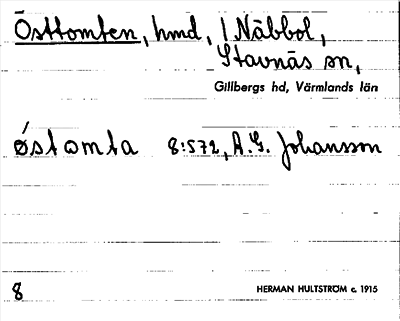 Östtomten, hmd, / Näbbol,
Stavnäs sn,
Gillbergs hd, Värmlands län
ǿstomta 8:572, A.G. Johansson
8 HERMAN HULTSTRÖM c. 1915